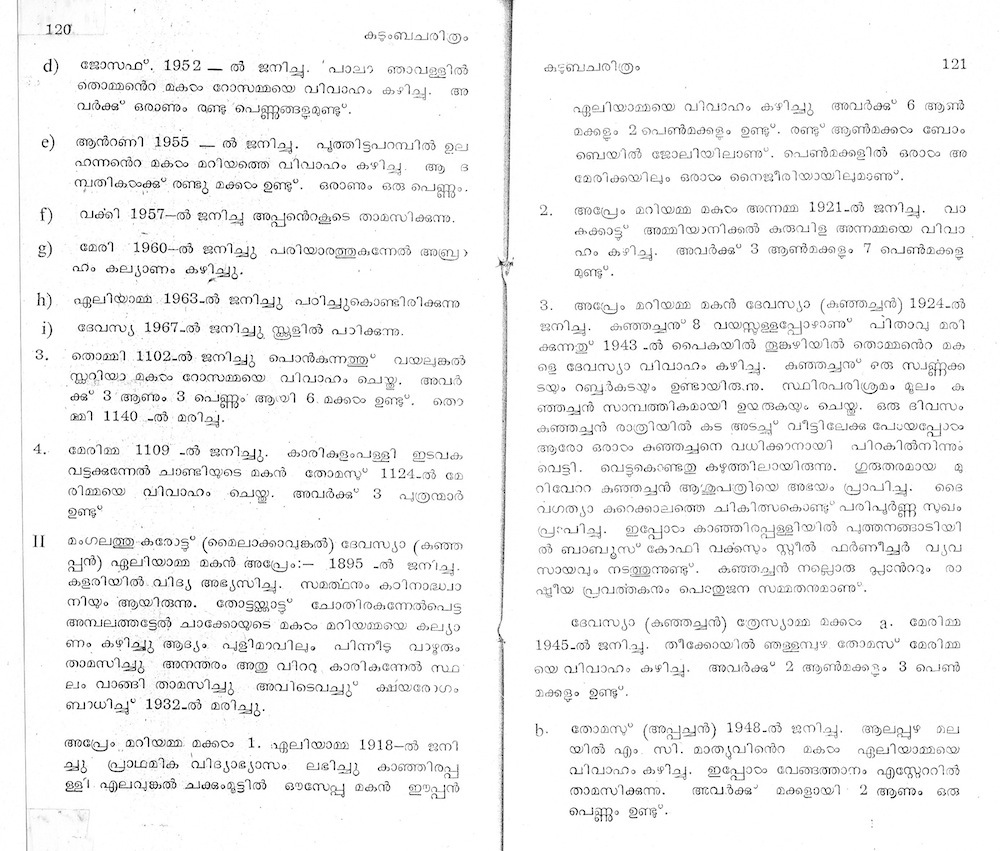 120
കുടുംബചരിത്രം
d) ജോസഫ്. 1952 — ൽ ജനിച്ചു. പാലാ ഞാവള്ളിൽ
തൊമ്മൻെറ മകൾ റോസമ്മയെ വിവാഹം കഴിച്ചു. അ
വർക്ക് ഒരാണും രണ്ടു പെണ്ണുങ്ങളുമുണ്ട്.
e) ആൻറണി 1955 — ൽ ജനിച്ചു. പൂത്തിട്ടപറമ്പിൽ ഉല
ഹന്നൻെറ മകൾ മറിയത്തെ വിവാഹം കഴിച്ചു ആ ദ
മ്പതികൾക്ക് രണ്ടു മക്കൾ ഉണ്ട്. ഒരാണും ഒരു പെണ്ണും.
f) വക്കി 1957—ൽ ജനിച്ചു അപ്പൻെറകൂടെ താമസിക്കുന്നു.
g) മേരി 1960—ൽ ജനിച്ചു പരിയാരത്തുകുന്നേൽ അബ്രാ
ഹം കല്യാണം കഴിച്ചു.
h) ഏലിയാമ്മ 1963-ൽ ജനിച്ചു പഠിച്ചുകൊണ്ടിരിക്കുന്നു
i) ദേവസ്യ 1967-ൽ ജനിച്ചു സ്കൂളിൽ പഠിക്കുന്നു.
3. തൊമ്മി 1102-ൽ ജനിച്ചു പൊൻകുന്നത്ത് വയലുങ്കൽ
സ്കറിയാ മകൾ റോസമ്മയെ വിവാഹം ചെയ്തു. അവർ
ക്ക് 3 ആണും 3 പെണ്ണും ആയി 6 മക്കൾ ഉണ്ട്. തൊ
മ്മി 1140 -ൽ മരിച്ചു.
4. മേരിമ്മ 1109 -ൽ ജനിച്ചു. കാരികുളംപള്ളി ഇടവക
വട്ടക്കുന്നേൽ ചാണ്ടിയുടെ മകൻ തോമസ് 1124-ൽ മേ
രിമ്മയെ വിവാഹം ചെയ്തു. അവർക്ക് 3 പുത്രന്മാർ
ഉണ്ട്
II മംഗലത്തുകരോട്ട് (മൈലാക്കാവുങ്കൽ) ദേവസ്യാ (കുഞ്ഞ
പ്പൻ) ഏലിയാമ്മ മകൻ അപ്രേം:— 1895 -ൽ ജനിച്ചു.
കളരിയിൽ വിദ്യ അഭ്യസിച്ചു. സമർത്ഥനും കഠിനാദ്ധ്വാ
നിയും ആയിരുന്നു. തോട്ടയ്ക്കാട്ട് ചോതിരകുന്നേൽപെട്ട
അമ്പലത്തട്ടേൽ ചാക്കോയുടെ മകൾ മറിയമ്മയെ കല്യാ
ണം കഴിച്ചു ആദ്യം പുളിമാവിലും പിന്നീടു വാഴൂരും
താമസിച്ചു അനന്തരം അതു വിററു കാരികുന്നേൽ സ്ഥ
ലം വാങ്ങി താമസിച്ചു അവിടെവച്ച് ക്ഷയരോഗം
ബാധിച്ച് 1932-ൽ മരിച്ചു.
അപ്രേം മറിയമ്മ മക്കൾ 1. ഏലിയാമ്മ 1918—ൽ ജനി
ച്ചു പ്രാഥമിക വിദ്യാഭ്യാസം ലഭിച്ചു കാഞ്ഞിരപ്പ
ള്ളി എലവുങ്കൽ ചക്കുംമൂട്ടിൽ ഔസേപ്പു മകൻ ഈപ്പൻ
കുടുബചരിത്രം
121
ഏലിയാമ്മയെ വിവാഹം കഴിച്ചു അവർക്ക് 6 ആൺ
മക്കളും 2 പെൺമക്കളും ഉണ്ട്. രണ്ട് ആൺമക്കൾ ബോം
ബെയിൽ ജോലിയിലാണ്. പെൺമക്കളിൽ ഒരാൾ അ
മേരിക്കയിലും ഒരാൾ നൈജീരിയായിലുമാണ്.
2. അപ്രേം മറിയമ്മ മകൾ അന്നമ്മ 1921-ൽ ജനിച്ചു. വാ
കക്കാട്ട് അമ്മിയാനിക്കൽ കുരുവിള അന്നമ്മയെ വിവാ
ഹം കഴിച്ചു. അവർക്ക് 3 ആൺമക്കളും 7 പെൺമക്കളു
മുണ്ട്.
3. അപ്രേം മറിയമ്മ മകൻ ദേവസ്യാ (കുഞ്ഞച്ചൻ) 1924-ൽ
ജനിച്ചു. കുഞ്ഞച്ചന് 8 വയസ്സുള്ളപ്പോഴാണ് പിതാവു മരി
ക്കുന്നത് 1943 -ൽ പൈകയിൽ തുങ്കുഴിയിൽ തൊമ്മൻെറ മക
ളെ ദേവസ്യാ വിവാഹം കഴിച്ചു. കുഞ്ഞച്ചന് ഒരു സ്വർണ്ണക്ക
ടയും റബ്ബർകടയും ഉണ്ടായിരുന്നു. സ്ഥിരപരിശ്രമം മൂലം കു
ഞ്ഞച്ചൻ സാമ്പത്തികമായി ഉയരുകയും ചെയ്തു. ഒരു ദിവസം
കുഞ്ഞച്ചൻ രാത്രിയിൽ കട അടച്ച് വീട്ടിലേക്കു പോയപ്പോൾ
ആരോ ഒരാൾ കുഞ്ഞച്ചനെ വധിക്കാനായി പിറകിൽനിന്നും
വെട്ടി. വെട്ടുകൊണ്ടതു കഴുത്തിലായിരുന്നു. ഗുരുതരമായ മു
റിവേററ കുഞ്ഞച്ചൻ ആശുപത്രിയെ അഭയം പ്രാപിച്ചു. ദൈ
വഗത്യാ കുറെക്കാലത്തെ ചികിത്സകൊണ്ട് പരിപൂർണ്ണ സുഖം
പ്രാപിച്ചു. ഇപ്പോൾ കാഞ്ഞിരപ്പള്ളിയിൽ പുത്തനങ്ങാടിയി
ൽ ബാബൂസ് കോഫി വർക്സും സ്റ്റീൽ ഫർണീച്ചർ വ്യവ
സായവും നടത്തുന്നുണ്ട്. കുഞ്ഞച്ചൻ നല്ലൊരു പ്ലാൻററും രാ
ഷ്ട്രീയ പ്രവർത്തകനും പൊതുജന സമ്മതനുമാണ്.
ദേവസ്യാ (കുഞ്ഞച്ചൻ) ത്രേസ്യാമ്മ മക്കൾ a. മേരിമ്മ
1945-ൽ ജനിച്ചു. തീക്കോയിൽ ഞള്ളമ്പുഴ തോമസ് മേരിമ്മ
യെ വിവാഹം കഴിച്ചു. അവർക്ക് 2 ആൺമക്കളും 3 പെൺ
മക്കളും ഉണ്ട്.
b. തോമസ് (അപ്പച്ചൻ) 1948-ൽ ജനിച്ചു. ആലപ്പുഴ മല
യിൽ എം. സി. മാത്യുവിൻെറ മകൾ ഏലിയാമ്മയെ
വിവാഹം കഴിച്ചു. ഇപ്പോൾ വേങ്ങത്താനം എസ്റ്റേററിൽ
താമസിക്കുന്നു. അവർക്ക് മക്കളായി 2 ആണും ഒരു
പെണ്ണും ഉണ്ട്.